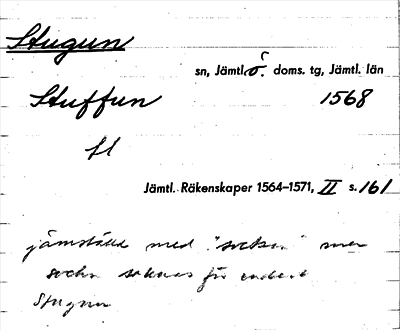 Stugun
sn, Jämtl. ö. doms. tg, Jämtl. län
Stuffun 1568
fl
Jämtl. Räkenskaper 1564–1571, II s. 161
jämställd med "socken" men
socken saknas för endast
Stugun